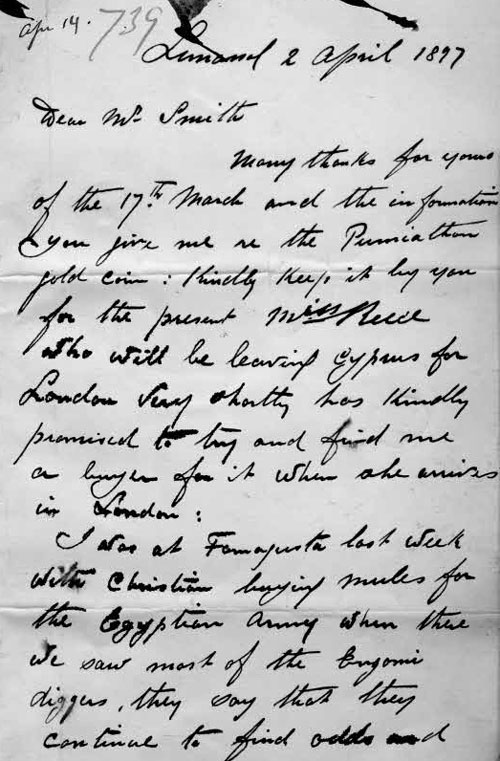 Apr 14. 739
Limassol 2 April 1897
Dear Mr Smith
Many thanks for yours
of the 17th March and the information
you give me re the Pumiathon
gold coin : Kindly keep it by you
for the present Miss Reece
who will be leaving Cyprus for
London very shortly has kindly
promised to try and find me
a buyer for it when she arrives
in London :
I was at Famagusta last week
with Christian buying mules for
the Egyptian Army when there
we saw most of the Engomi
diggers, they say that they
continue to find odds and